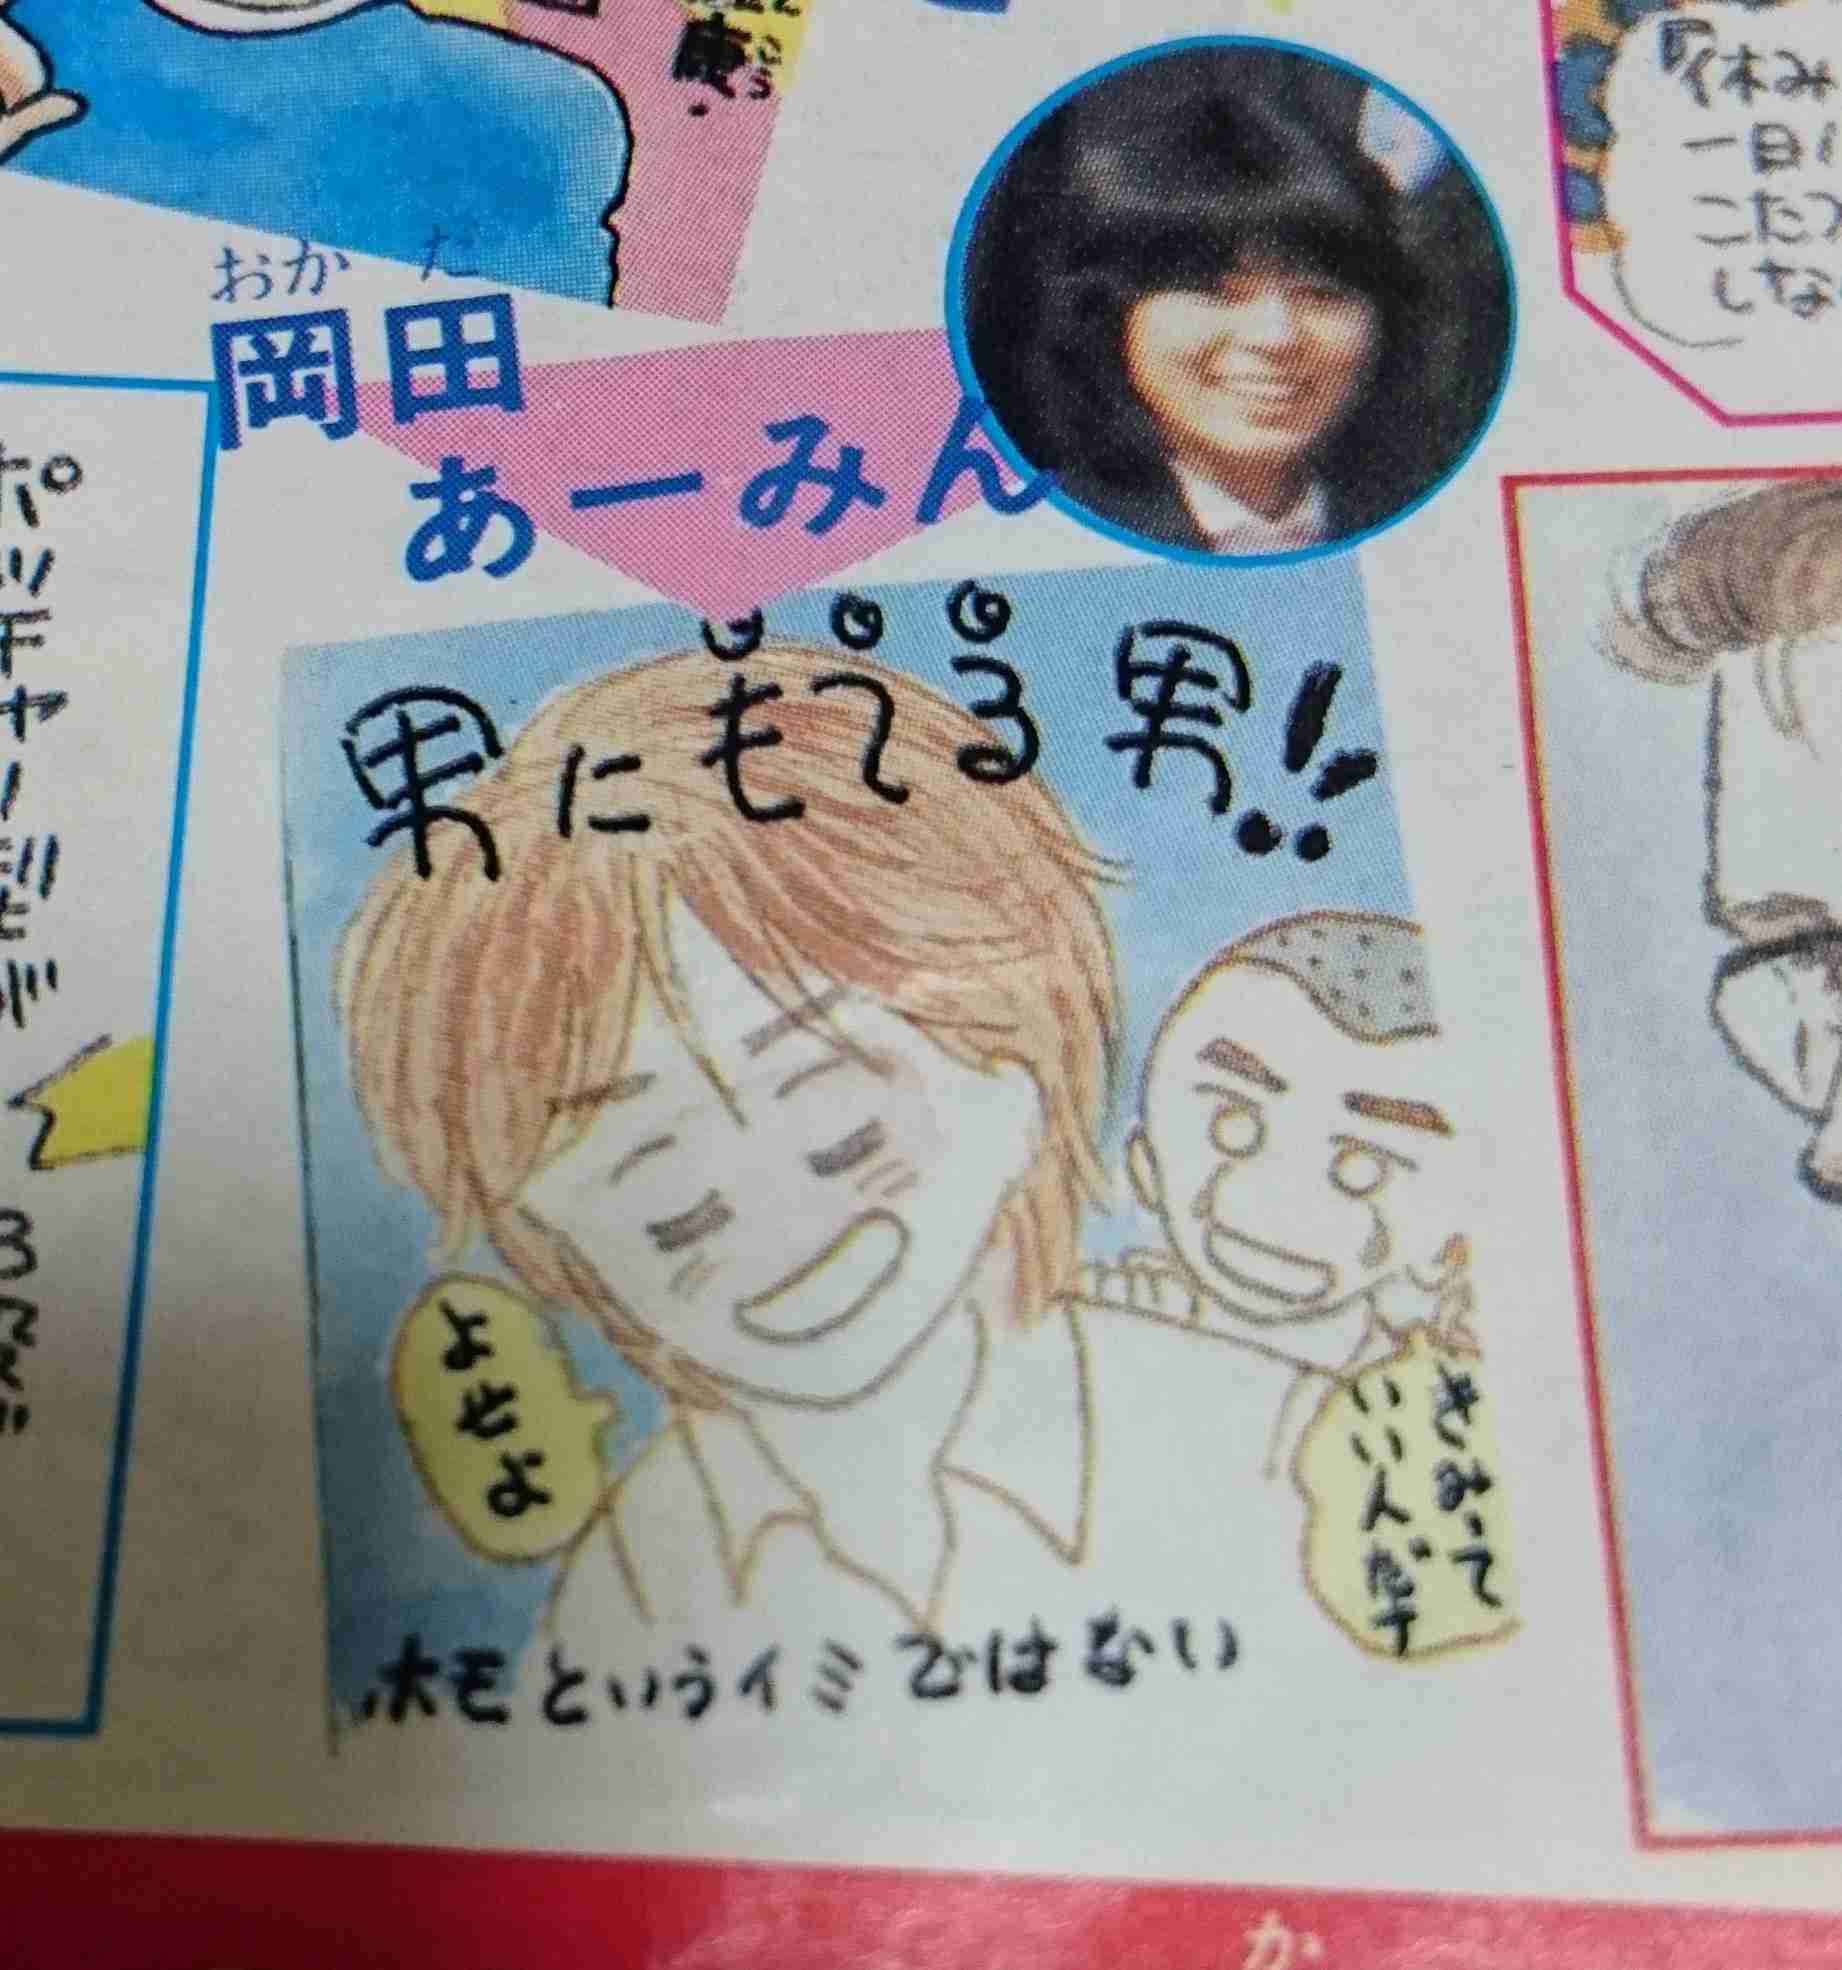 康
こう
『休み
一日
こたつ
しな
おか だ
岡田
あーみん
男にもてる男!!
よせよ
きみって
いい人だナ
ホモというイミではない
か